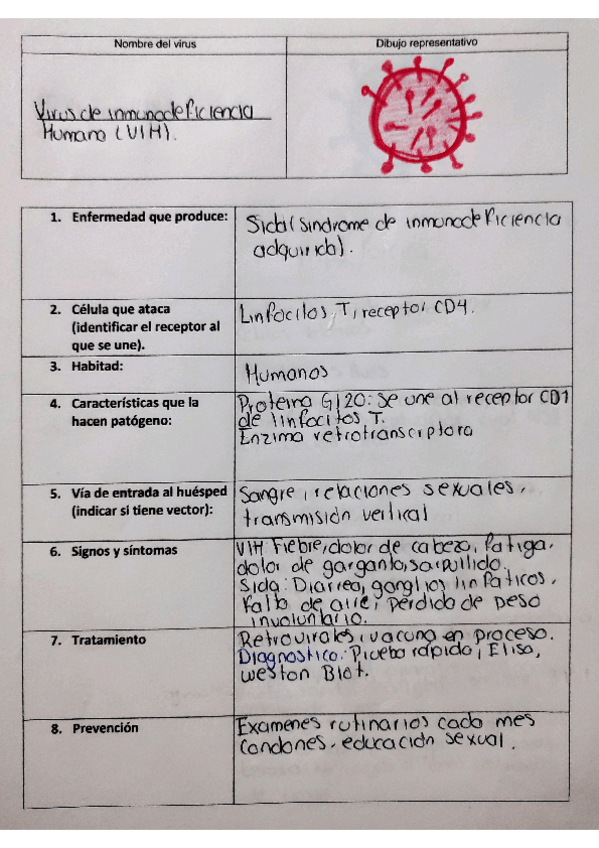 Nombre del virus
Dibujo representativo
Virus de inmunodeficiencia
Humano (VIH).
1. Enfermedad que produce:
Sida (sindrome de inmunodeficiencia
adquirida).
2. Célula que ataca
(identificar el receptor al
que se une).
Linfocitos T, receptor CD4.
3. Habitad:
Humanos
4. Características que la
hacen patógeno:
Proteina G120: se une al receptor CD4
de linfocitos T.
Enzima retrotranscriptora
5. Vía de entrada al huésped
(indicar si tiene vector):
Sangre, relaciones sexuales,
transmisión vertical
6. Signos y síntomas
VIH: Fiebre, dolor de cabeza, fatiga,
dolor de garganta, sarpullido.
Sida: Diarrea, ganglios linfáticos,
falta de aire, perdida de peso
involuntario.
7. Tratamiento
Retrovirales, vacuna en proceso.
Diagnostico: Prueba rápida, Elisa,
weston Blot.
8. Prevención
Examenes rutinarios cada mes
Condones, educación sexual.